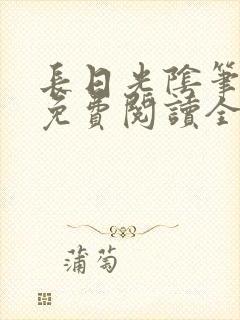 長日光陰筆
免費閱讀全
蒲萄